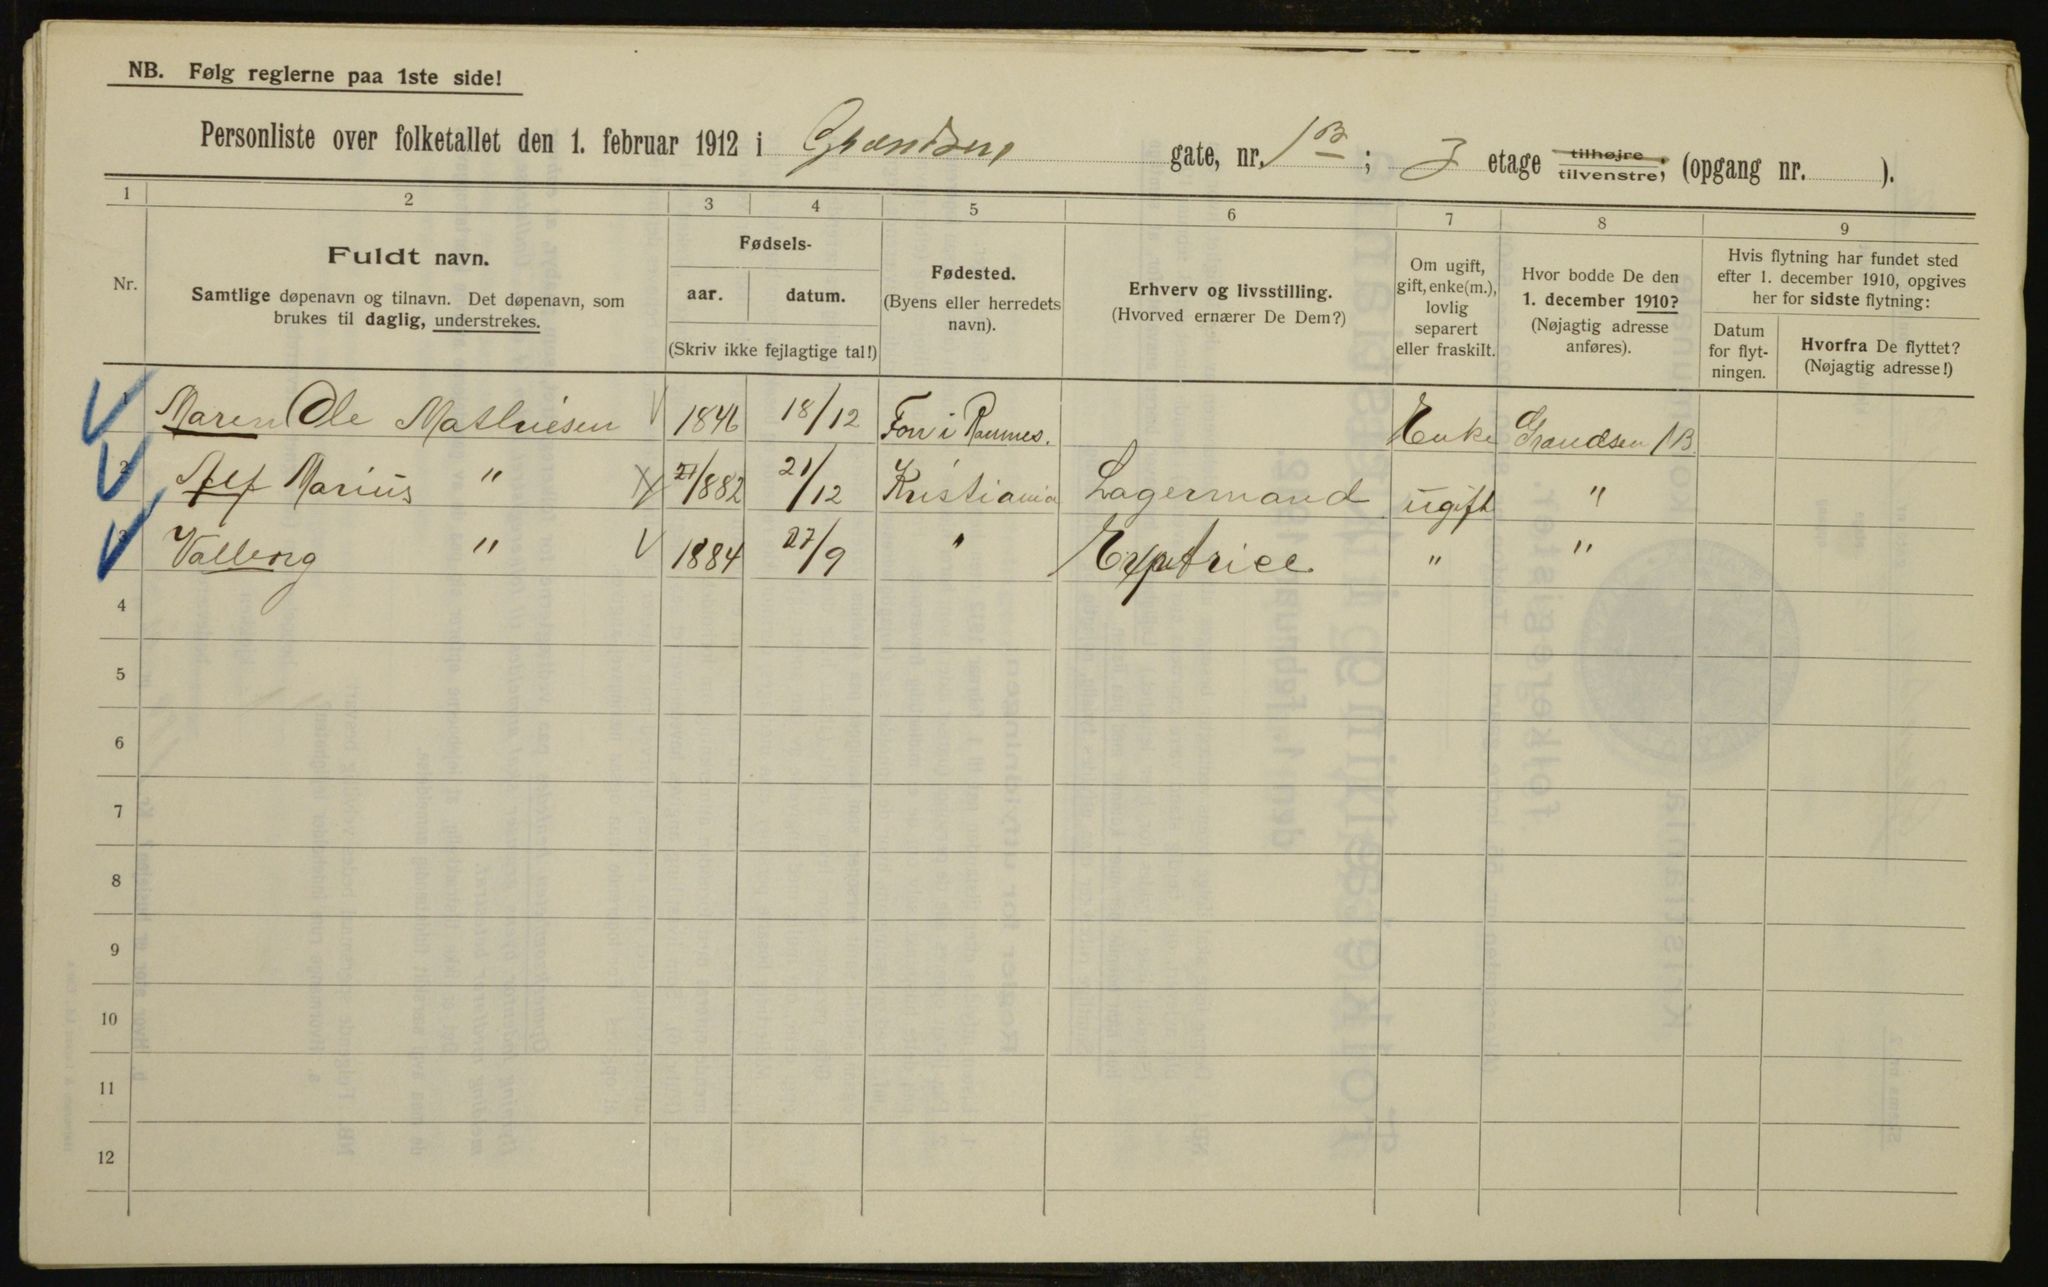 NB. Følg reglerne paa 1ste side!
Personliste over folketallet den 1. februar 1912 i Grændsens gate, nr. 1B; 3 etage tilhøjre, tilvenstre, (opgang nr. ).
1 2 3 4 5 6 7 8 9
Nr.
Fuldt navn.
Samtlige døpenavn og tilnavn. Det døpenavn, som
brukes til daglig, understrekes.
Fødsels-
aar. datum.
(Skriv ikke fejlagtige tal!)
Fødested.
(Byens eller herredets
navn).
Erhverv og livsstilling.
(Hvorved ernærer De Dem?)
Om ugift,
gift, enke(m.),
lovlig
separert
eller fraskilt.
Hvor bodde De den
1. december 1910?
(Nøjagtig adresse
anføres).
Hvis flytning har fundet sted
efter 1. december 1910, opgives
her for sidste flytning:
Datum
for flyt-
ningen.
Hvorfra De flyttet?
(Nøjagtig adresse!)
1 Maren Ole Mathiesen 1846 18/12 i Raumes. Enke Grændsen 1B
2 Alf Marius " 21/882 21/12 Kristiania Lagermand ugift "
3 Valborg " 1884 27/9 " " "
4
5
6
7
8
9
10
11
12